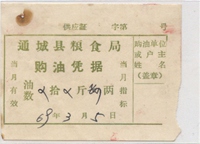 供应证 字第 号
通城县粮食局
购油凭据
当月有效
油数 斤 两
当月指标
69年3月5日
购油单位
或户主
姓名
(盖章)